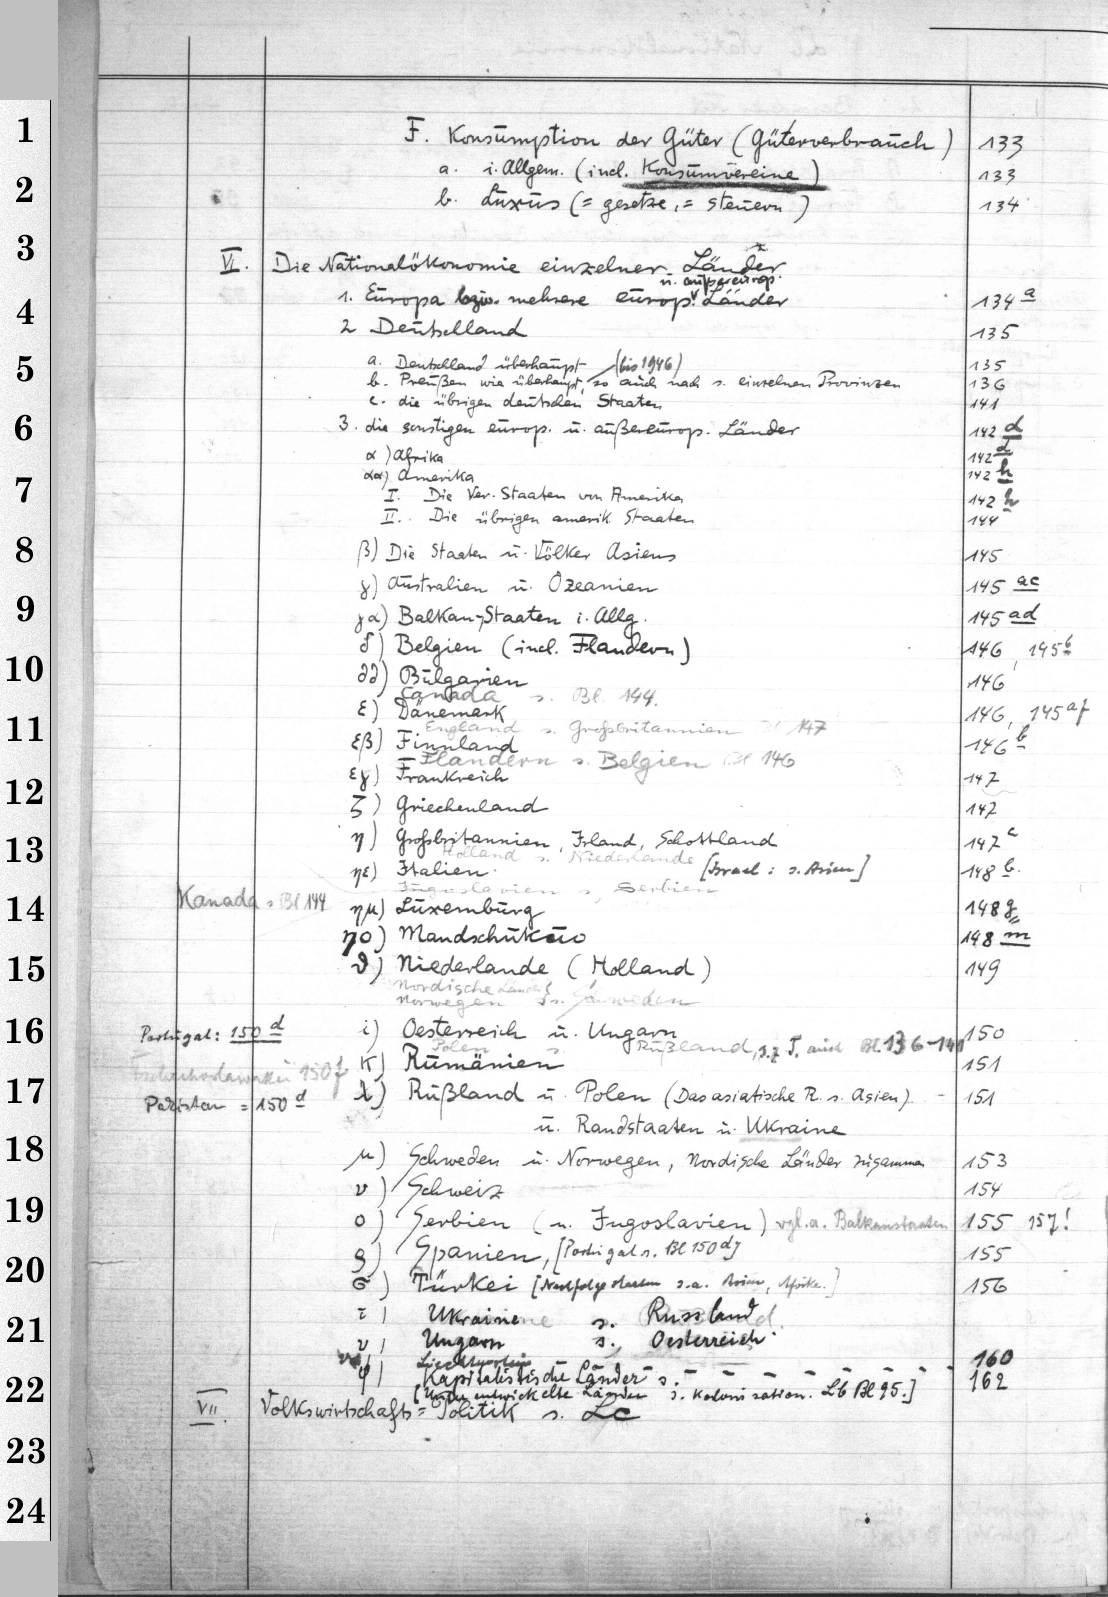 1
F. Konsumption der Güter (Güterverbrauch) 133
a. i. Allgem. (incl. Konsumvereine) 133
2
b. Luxus (= gesetze, = steuern) 134
3
VI. Die Nationalökonomie einzelner Länder
u. außereurop.
1. Europa bzw. mehrere europ. Länder 134 a
4
2 Deutschland 135
5
a. Deutschland überhaupt (bis 1946) 135
b. Preußen wie überhaupt, so auch nach s. einzelnen Provinzen 136
c. die übrigen deutschen Staaten 141
6
3. die sonstigen europ. u. außereurop. Länder 142 d
α) Afrika 142 d
αα) Amerika 142 h
7
I. Die Ver. Staaten von Amerika 142 h
II. Die übrigen amerik. Staaten 144
8
β) Die Staaten u. Völker Asiens 145
γ) Australien u. Ozeanien 145 ac
9
γα) Balkan-Staaten i. Allg. 145 ad
δ) Belgien (incl. Flandern) 146, 145 b
10
δδ) Bulgarien 146
Canada s. Bl. 144.
ε) Dänemark 146, 145 af
11
England s. Großbritannien Bl 147
εβ) Finnland 146 b
Flandern s. Belgien Bl 146
εγ) Frankreich 147
12
ζ) Griechenland 147
13
η) Großbritannien, Irland, Schottland 147 a
Holland s. Niederlande
ηε) Italien. [Israel: s. Asien] 148 b.
Jugoslavien s. Serbien
14
Kanada s. Bl 144
ημ) Luxemburg 148 g
ηο) Mandschukuo 148 m
15
θ) Niederlande (Holland) 149
Nordische Länder
Norwegen s. Schweden
16
Portugal: 150 d
i) Oesterreich u. Ungarn 150
Polen s. Rußland, z. T. auch Bl. 136-141
κ) Rumänien 151
Tschechoslowakei 150 f
17
λ) Rußland u. Polen (Das asiatische R. s. Asien) - 151
Pakistan = 150 d
u. Randstaaten u. Ukraine
18
μ) Schweden u. Norwegen, Nordische Länder zusammen 153
ν) Schweiz 154
19
ο) Serbien (u. Jugoslavien) vgl. a. Balkanstaaten 155 157!
ϱ) Spanien, [Portugal s. Bl 150 d] 155
20
σ) Türkei [Nachfolgestaaten s. a. Asien, Afrika.] 156
τ) Ukraine s. Russland
21
υ) Ungarn s. Oesterreich.
Liechtenstein 160
φ) Kapitalistische Länder s. - - - - - 162
22
[Unterentwickelte Länder s. Kolonisation. Lb Bl 95.]
VII. Volkswirtschafts = Politik s. Lc
23
24